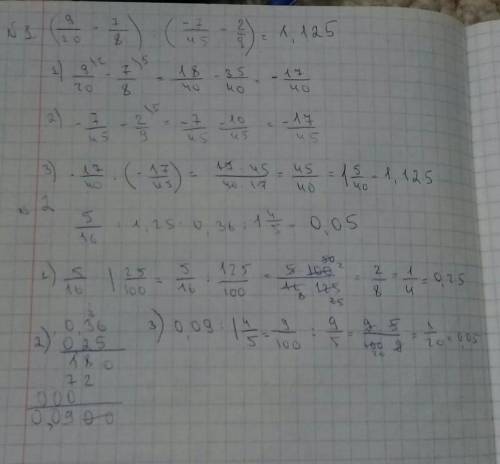 №1 (9/20 - 7/8) : (-7/45 - 2/9) = 1,125
1) 9/20 \2 - 7/8 \5 = 18/40 - 35/40 = -17/40
2) -7/45 - 2/9 \5 = -7/45 - 10/45 = -17/45
3) -17/40 : (-17/45) = 17 · 45/40 · 17 = 45/40 = 1 5/40 = 1,125
№2
5/16 : 1,25 · 0,36 : 1 4/5 = 0,05
1) 5/16 : 1 25/100 = 5/16 : 125/100 = 5 · 100/16 · 125 = 2/8 = 1/4 = 0,25
2) 0,36
0,25
180
72
000
0,0900
3) 0,09 : 1 4/5 = 9/100 : 9/5 = 9 · 5/100 · 9 = 1/20 = 0,05